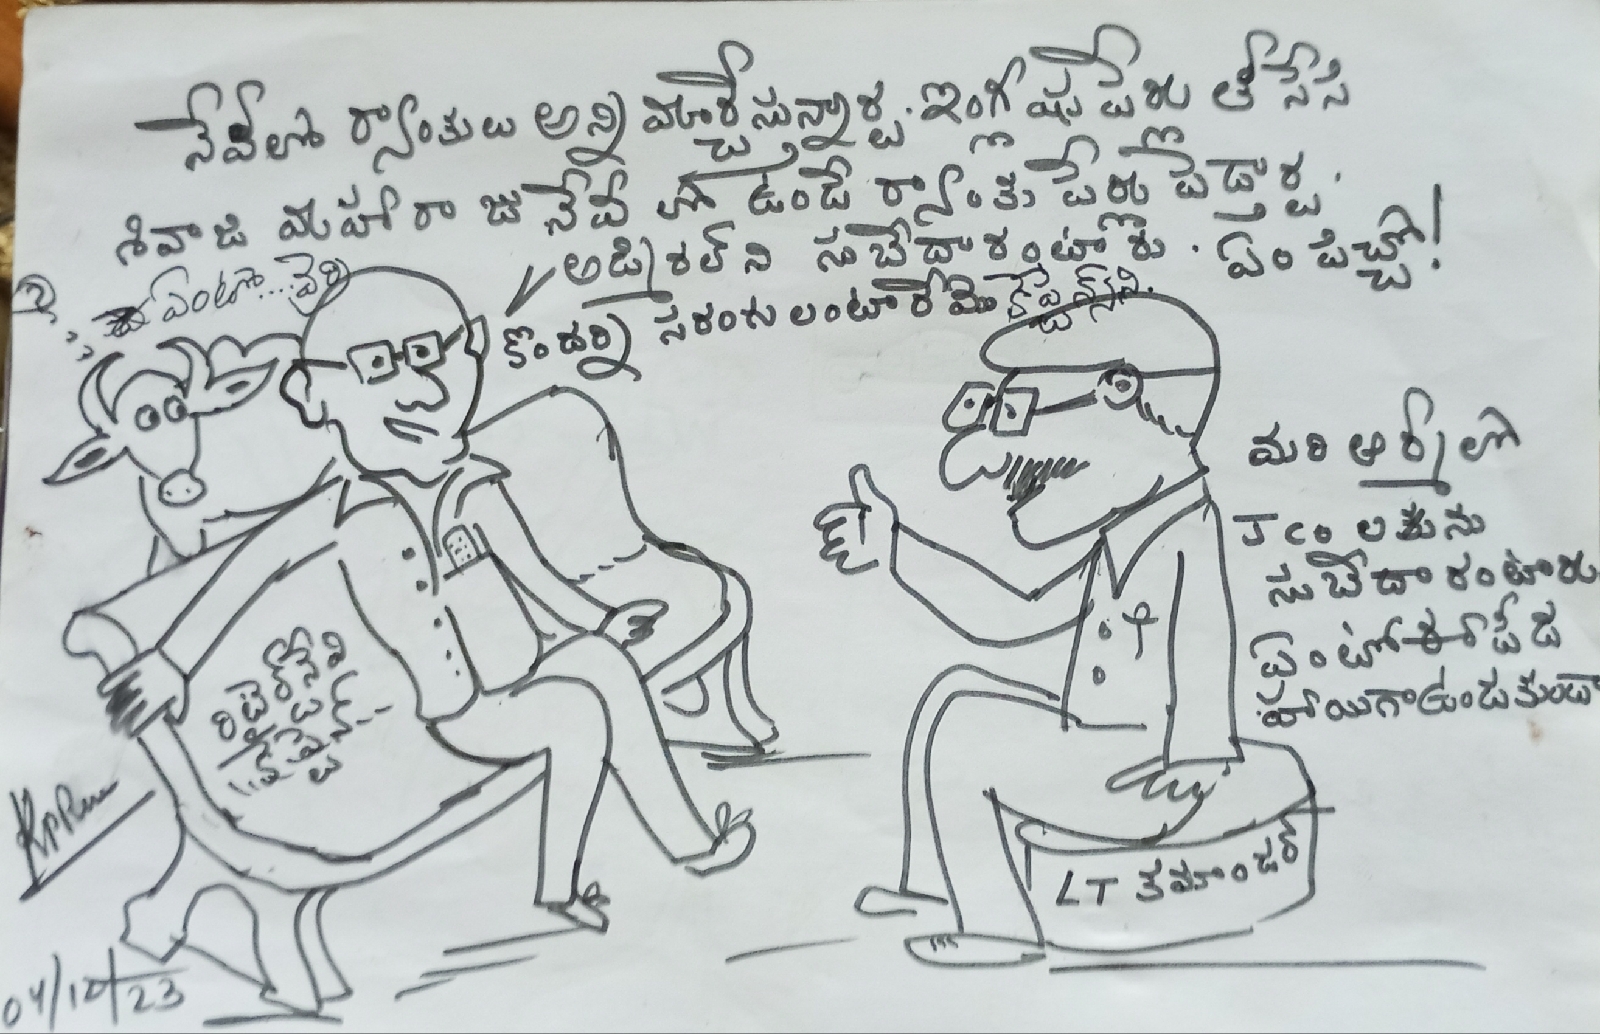 నేవీలో ర్యాంకులు అన్ని మార్చేస్తున్నార్ట. ఇంగ్లీషు పేర్లు తీసేసి
శివాజి మహారాజు నేవీ లో ఉండే ర్యాంకు పేర్లు పెడ్తార్ట.
అడ్మిరల్ ని సుబేదారంటార్రు. ఏం పిచ్చో!
కొందర్ని సరంగులంటారేమొ కేప్టెన్స్‌ని.
ఏంటో... వైరి
మరి ఆర్మీలో
JCO లకును
సుబేదారంటారు
ఏంటో ఈ పీడ
హాయిగా ఉండకుండా
రిటైర్డ్
నేవీ
కేప్టెన్...
LT కమాండర్
04/12/23